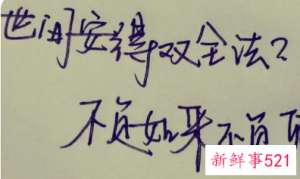 世间安得双全法?
不负如来不负
新鲜事521